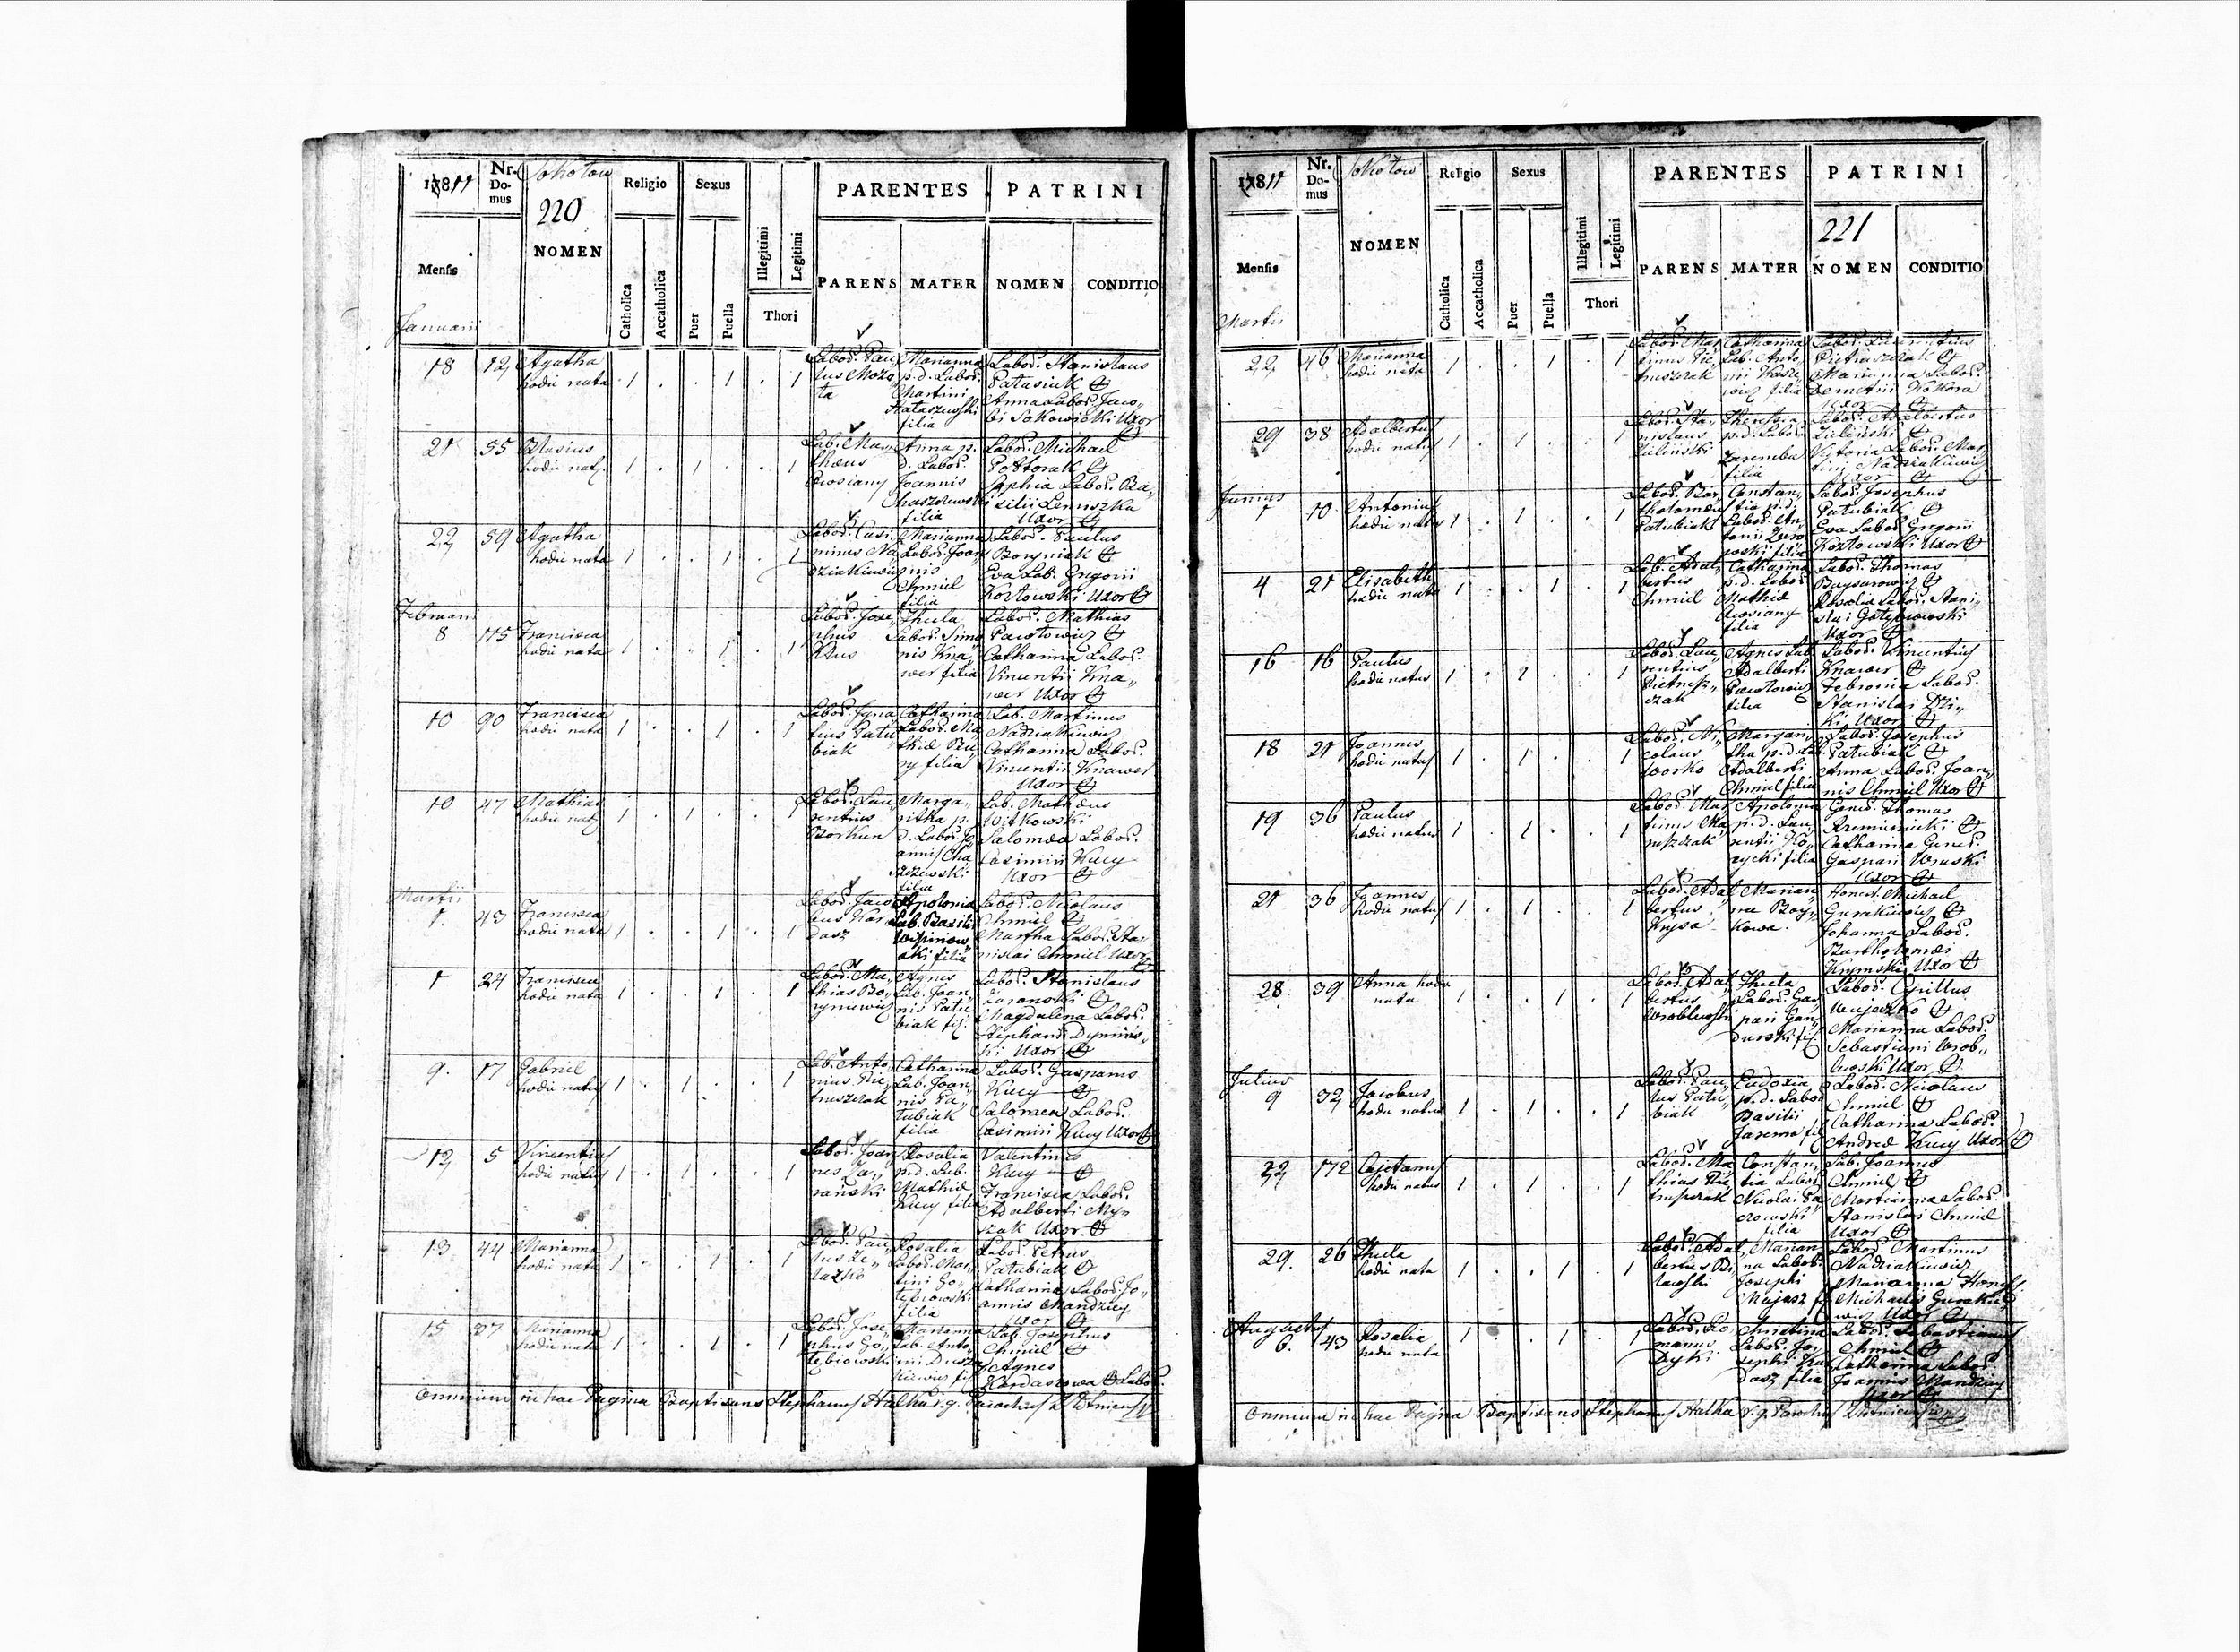 1811
Nr. Domus
Sokołow
220
NOMEN
Religio
Sexus
Illegitimi
Legitimi
Thori
PARENTES
PATRINI
Mensis
Catholica
Accatholica
Puer
Puella
PARENS
MATER
NOMEN
CONDITIO
Januarii
18 12 Agatha hodie nata 1 . . 1 . 1
Labor. Pau,,
lus Mozo
ta
Marianna
p. d. Labor.
Martini
filia
Labor. Stanislaus
Patusiak
Anna Labor. Jaco,,
bi Sokowicki Uxor
21 55 Blasius hodie nat9 1 . 1 . . 1
Lab. Ma,,
thæus
Anna p.
d. Labor.
Joannis
filia
Labor. Michael
Połtorak
Sophia Labor. Ba,,
silii Lemiszka
Uxor
22 59 Agatha hodie nata 1 . . 1 . 1
Labor. Casi,,
mirus Na
dziakiewicz
Marianna
Labor. Joan
nis
Chmiel
filia
Labor. Paulus
Boryniak
Eva Lab. Gregorii
Kozłowski Uxor
Februarii
8 115 Francisca hodie nata 1 . . 1 . 1
Labor. Jose,,
phus
Kłus
Thecla
Labor. Simo
nis Kna,,
wer filia
Labor. Mathias
Pawłowicz
Catharina Labor.
Vincentii Kna,,
wer Uxor
10 90 Francisca hodie nata 1 . . 1 . 1
Labor. Igna
tius Patu
biak
Catharina
Labor. Ma
thiæ
filia
Lab. Martinus
Nadziakiewicz
Catharina Labor.
Vincentii Knawer
Uxor
10 47 Mathias hodie nat9 1 . 1 . . 1
Labor. Lau,,
rentius
Borkun
Marga,,
ritha p.
d. Labor. Jo
annis
filia
Lab. Mathæus
Witkowski
Salomea Labor.
Casimiri Kucy
Uxor
Martii
1. 43 Francisca hodie nata 1 . . 1 . 1
Labor. Jaco
bus Kar
dasz
Apolonia
Lab. Basilii
Wisniow
ski filia
Labor. Nicolaus
Chmiel
Martha Labor. Sta
nislai Chmiel Uxor
1 24 Francisca hodie nata 1 . . 1 . 1
Labor. Ma,,
thias Bo,,
ryniewicz
Agnes
Lab. Joan,,
nis Patu
biak fil.
Labor. Stanislaus
Magdalena Labor.
Stephani
Uxor
9. 17 Gabriel hodie natus 1 . 1 . . 1
Lab. Anto
nius Pie,,
truszczak
Catharina
Lab. Joan,,
nis Pa,,
tubiak
filia
Labor. Gasparus
Kucy
Salomea Labor.
Casimiri Kucy Uxor
12 5 Vincentius hodie natus 1 . 1 . . 1
Labor. Joan
nes
Rosalia
p. d. Lab.
Mathiæ
Kucy filia
Valentinus
Kucy
Francisca Labor.
Adalberti My,,
szak Uxor
13 44 Marianna hodie nata 1 . . 1 . 1
Labor. Pau,,
lus
Rosalia
Labor. Mar,,
tini Go,,
łębiowski
filia
Labor. Petrus
Patubiak
Catharina Labor. Jo,,
annis Mandziey
Uxor
15 37 Marianna hodie nata 1 . . 1 . 1
Labor. Jose,,
phus Go,,
łębiowski
Marianna
Lab. Anto,,
nii
Lab. Josephus
Chmiel
Agnes
Kardaszowa Labor.
Omnium in hac Pagina Baptisans Stephanus Hałka r. g. Parochus
1811
Nr. Domus
Sokołow
NOMEN
Religio
Sexus
Illegitimi
Legitimi
Thori
PARENTES
PATRINI
221
Mensis
Catholica
Accatholica
Puer
Puella
PARENS
MATER
NOMEN
CONDITIO
Martii
22 46 Marianna hodie nata 1 . . 1 . 1
Labor. Mar
tinus Pie,,
truszczak
Catharina
Lab. Anto
nii
filia
Labor. Laurentius
Pietruszczak
Marianna Labor.
Demetrii Kokora
Uxor
29 38 Adalbertus hodie natus 1 . 1 . . 1
Labor. Sta,,
nislaus
Zulinski
p. d. Labor.
Zaremba
filia
Labor. Adalbertus
Zulinski
Victoria Labor. Mar
tini Nadziakiewicz
Uxor
Junius
1 10 Antonius hodie natus 1 . 1 . . 1
Labor. Bar,,
tholomæus
Patubiak
Constan,,
tia p. d.
Labor. An,,
tonii
filia
Labor. Josephus
Patubiak
Eva Labor. Gregorii
Kozłowski Uxor
4 21 Elisabeth hodie nata 1 . . 1 . 1
Lab. Adal,,
bertus
Chmiel
Catharina
p. d. Labor.
Mathiæ
filia
Labor. Thomas
Rosalia Labor. Stani,,
slai Gołębiowski
Uxor
16 16 Paulus hodie natus 1 . 1 . . 1
Labor. Lau,,
rentius
Pietrusz,,
czak
Agnes Lab.
Adalberti
Pawłowicz
filia
Labor. Vincentius
Knawer
Febronia Labor.
Stanislai Dzi,,
ki Uxor
18 21 Joannes hodie natus 1 . 1 . . 1
Labor. Ni,,
colaus
Worko
Margari,,
tha p. d. Lab.
Adalberti
Chmiel filia
Labor. Josephus
Patubiak
Anna Labor. Joan,,
nis Chmiel Uxor
19 36 Paulus hodie natus 1 . 1 . . 1
Labor. Mar
tinus
Apolonia
p. d. Lau,,
rentii
filia
Gener. Thomas
Krzemieniecki
Catharina Gener.
Gaspari
Uxor
21 36 Joannes hodie natus 1 . 1 . . 1
Labor. Adal
bertus
Krysa
Marian,,
na Boy,,
kowa.
Honest. Michael
Gurakiewicz
Johanna Labor.
Bartholomæi
Krymski Uxor
28 39 Anna hodie nata 1 . . 1 . 1
Labor. Adal
bertus
Wroblewski
Thecla
Labor. Gas,,
pari Gan,,
durski fil.
Labor. Cyrillus
Marianna Labor.
Sebastiani Wrob,,
lewski Uxor
Julius
9 32 Jacobus hodie natus 1 . 1 . . 1
Labor. Pau,,
lus Patu,,
biak
Eudoxia
p. d. Labor.
Basilii
Jarema fil.
Labor. Nicolaus
Chmiel
Catharina Labor.
Andreæ Kucy Uxor
22 172 Cajetanus hodie natus 1 . 1 . . 1
Labor. Ma
thias Pie,,
truszczak
Constan,,
tia Labor.
Nicolai
filia
Lab. Joannes
Chmiel
Marianna Labor.
Stanislai Chmiel
Uxor
29. 26 Thecla hodie nata 1 . . 1 . 1
Labor. Adal
bertus
Marian,,
na Labor.
Josephi
Labor. Martinus
Nadziakiewicz
Marianna Honest.
Michaelis Gurakie,,
wicz Uxor
Augustus
6. 43 Rosalia hodie nata 1 . . 1 . 1
Labor. Ro
manus
Dyki
Christina
Labor. Jo,,
sephi Kar
dasz filia
Labor. Sebastianus
Chmiel
Catharina Labor.
Joannis Mandziey
Uxor
Omnium in hac Pagina Baptisans Stephanus Hałka r. g. Parochus